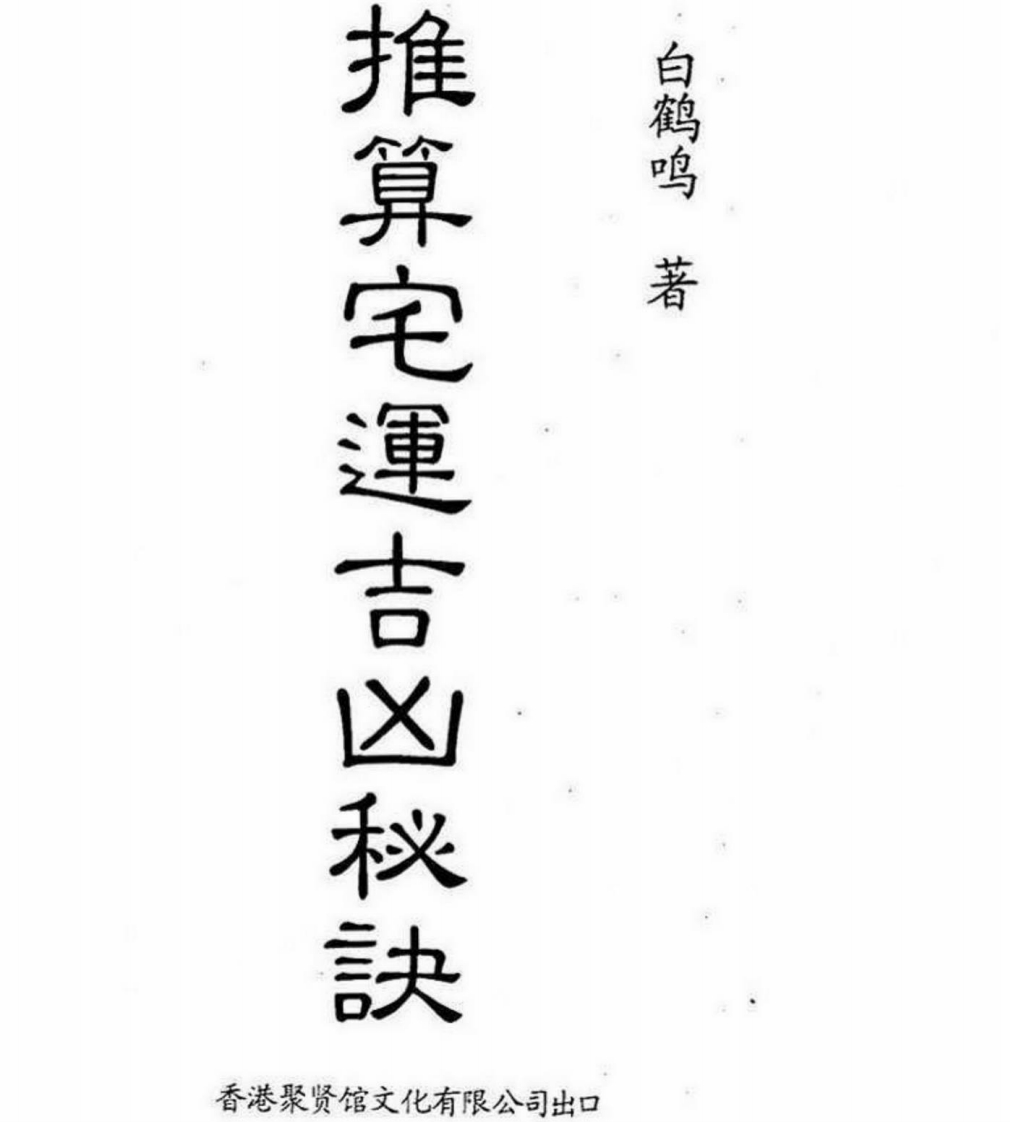 白鹤鸣 著
推算宅運吉凶秘訣
香港聚贤馆文化有限公司出口